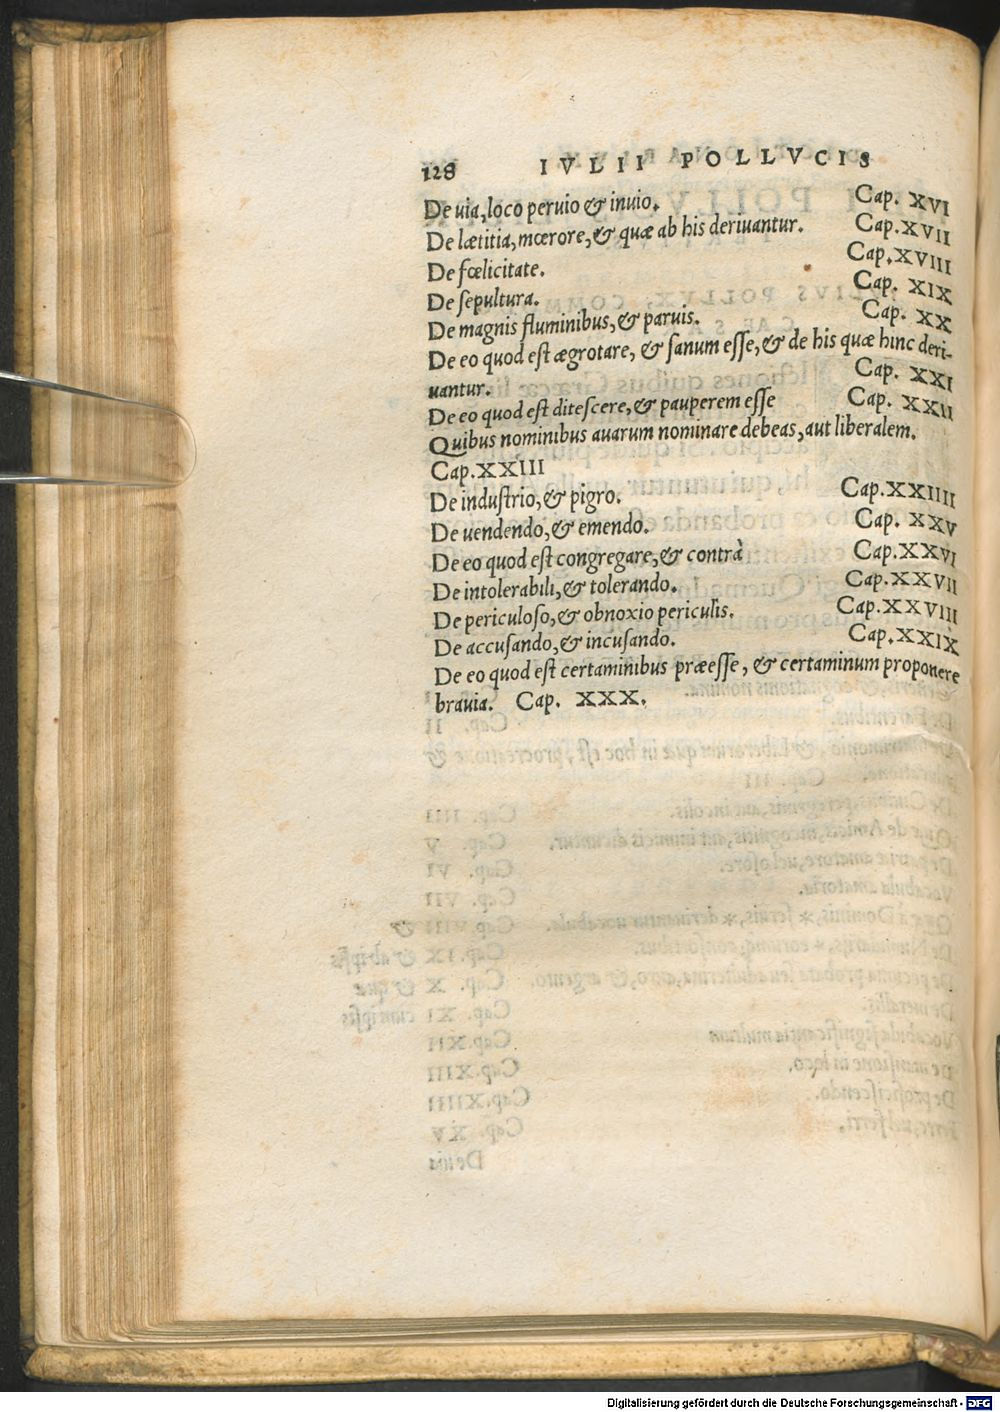 128 IVLII POLLVCIS
De uia, loco peruio & inuio. Cap. XVI
De lætitia, mœrore, & quæ ab his deriuantur. Cap. XVII
De fœlicitate. Cap. XVIII
De ſepultura. Cap. XIX
De magnis fluminibus, & paruis. Cap. XX
De eo quod eſt ægrotare, & ſanum eſſe, & de his quæ hinc deri-
uantur. Cap. XXI
De eo quod eſt diteſcere, & pauperem eſſe Cap. XXII
Quibus nominibus auarum nominare debeas, aut liberalem.
Cap. XXIII
De induſtrio, & pigro. Cap. XXIIII
De uendendo, & emendo. Cap. XXV
De eo quod eſt congregare, & contrà Cap. XXVI
De intolerabili, & tolerando. Cap. XXVII
De periculoſo, & obnoxio periculis. Cap. XXVIII
De accuſando, & incuſando. Cap. XXIX
De eo quod eſt certaminibus præeſſe, & certaminum proponere
brauia. Cap. XXX.
Digitalisierung gefördert durch die Deutsche Forschungsgemeinschaft - DFG